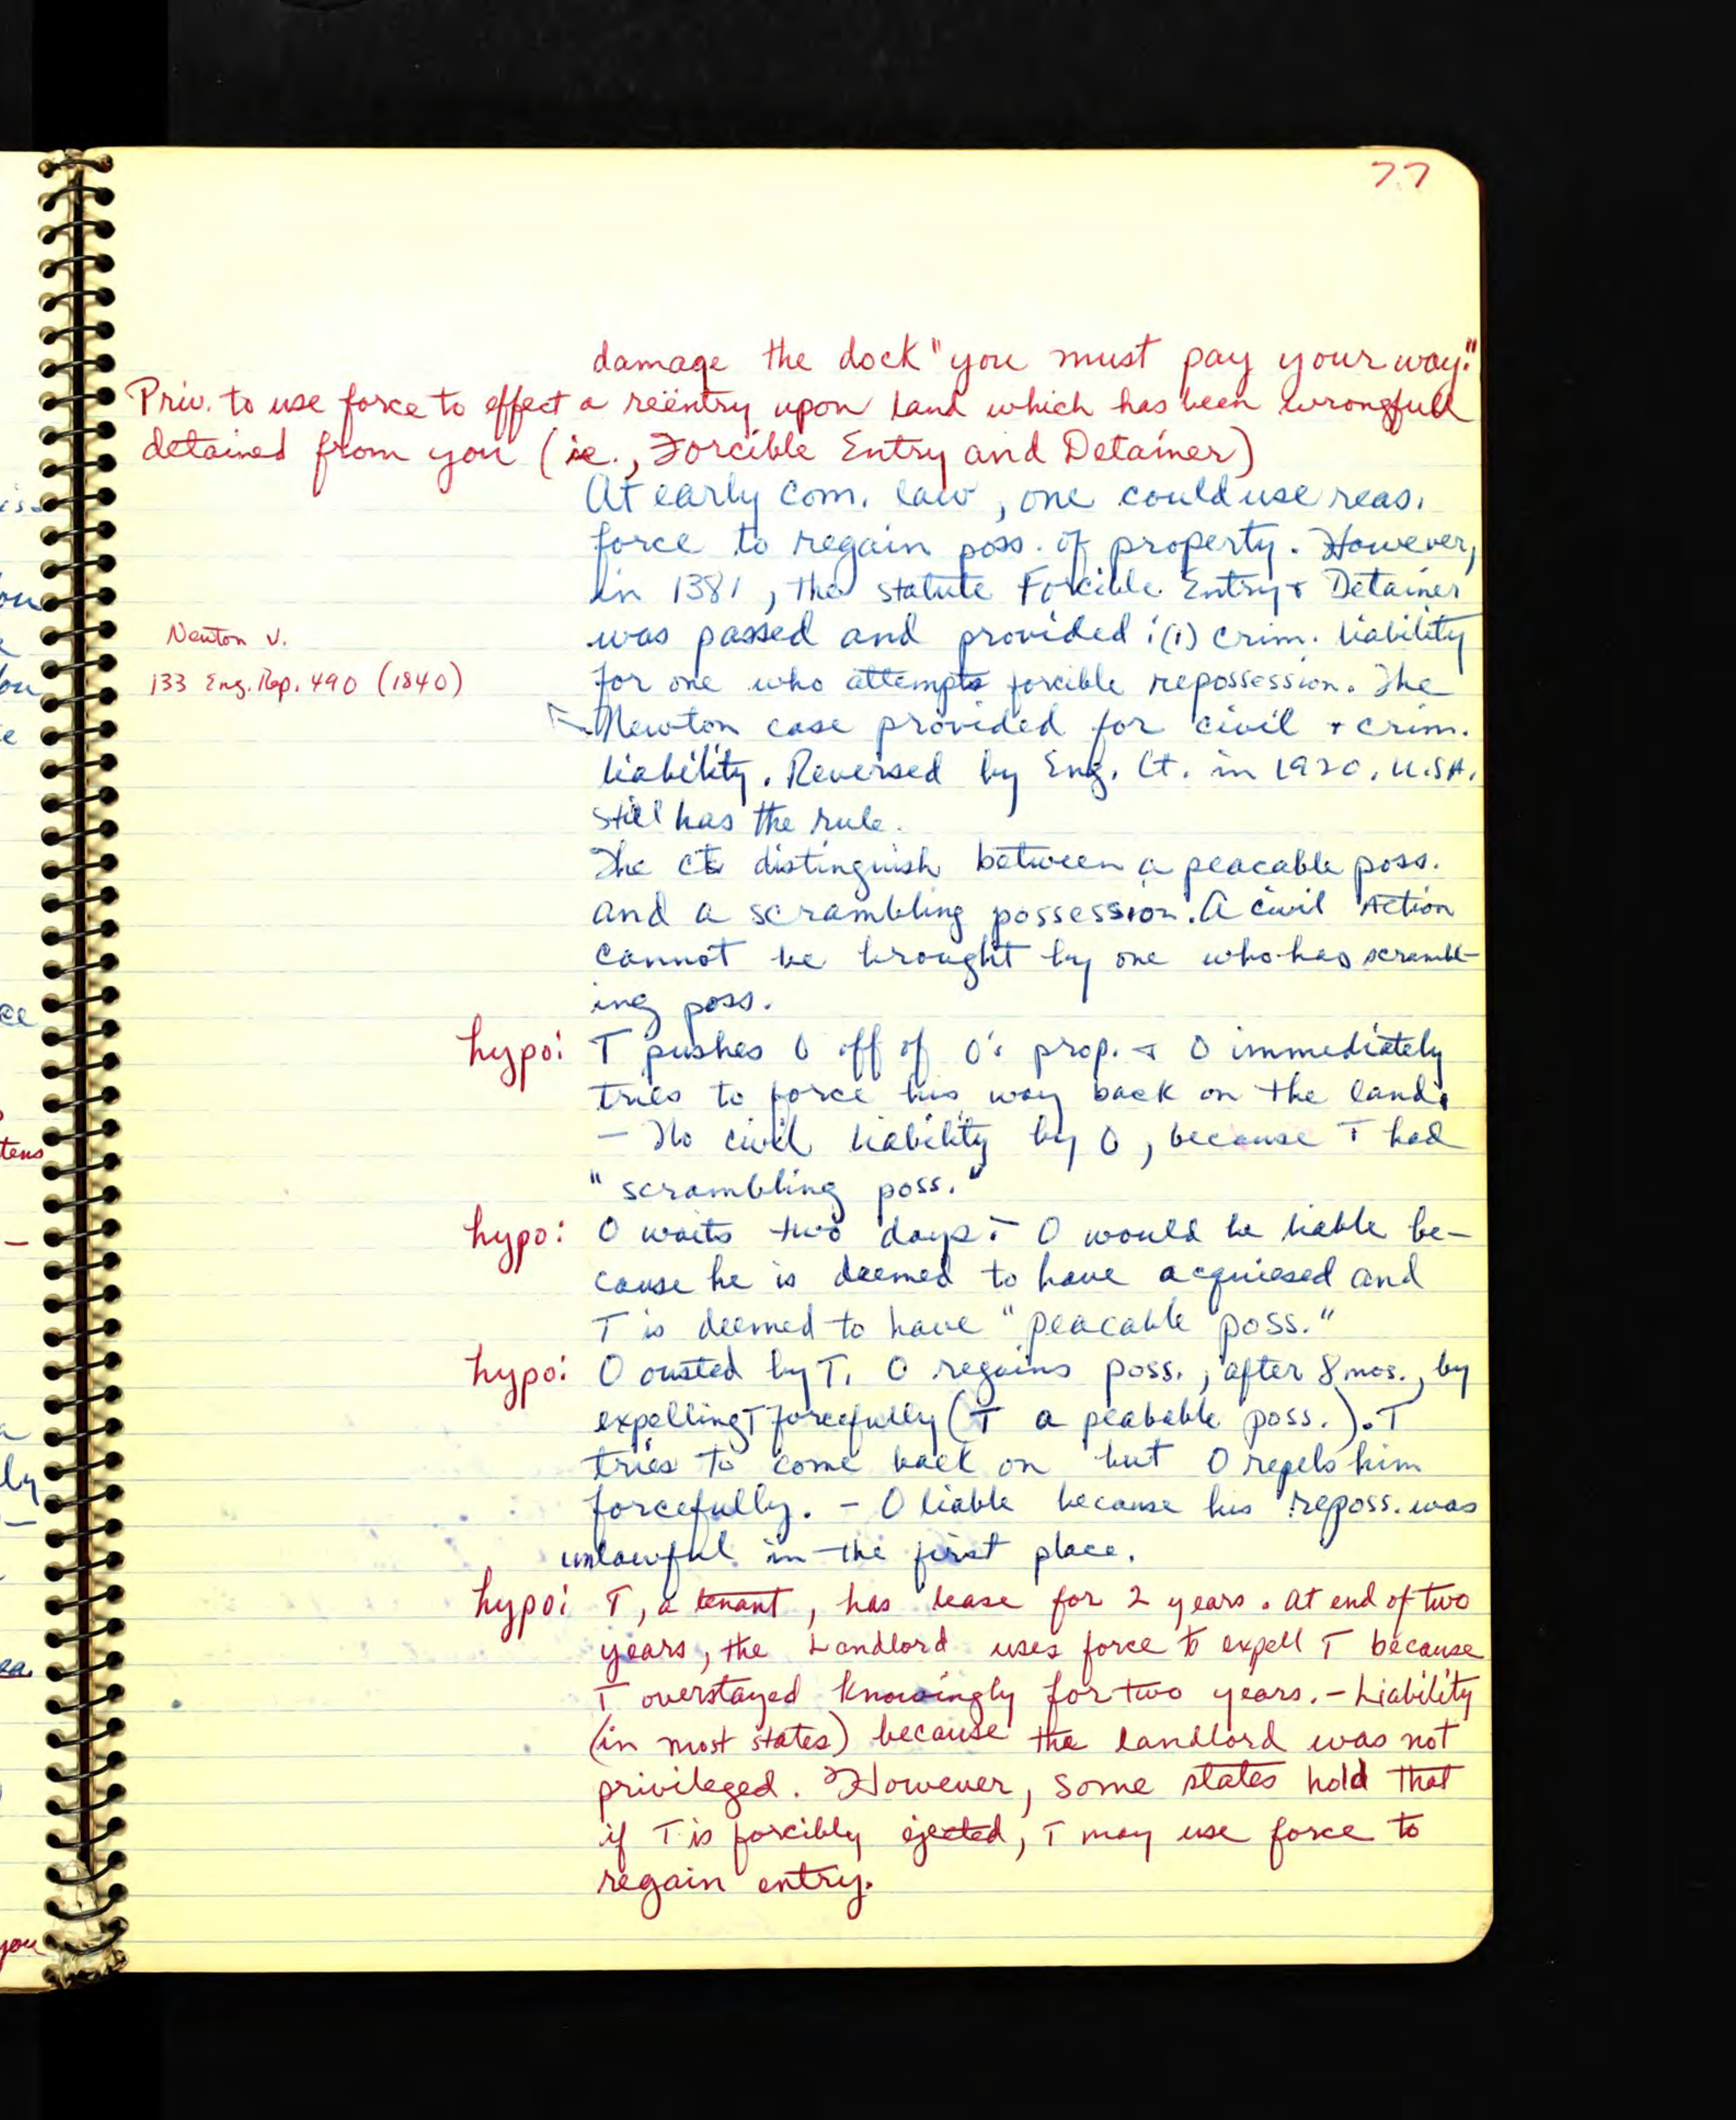 77
damage the dock "you must pay your way."
Priv. to use force to effect a reëntry upon land which has been wrongfull
detained from you (ie., Forcible Entry and Detainer)
At early com. law, one could use reas.
force to regain poss. of property. However,
in 1381, the statute Forcible Entry & Detainer
was passed and provided: (1) crim. liability
for one who attempts forcible repossession. The
Newton v.
133 Eng. Rep. 490 (1840)
Newton case provided for civil & crim.
liability. Reversed by Eng. Ct. in 1920. U.S.A.
still has the rule.
The cts distinguish between a peacable poss.
and a scrambling possession. A civil Action
cannot be brought by one who has scrambl-
ing poss.
hypo: T pushes O off of O's prop. & O immediately
tries to force his way back on the land.
- No civil liability by O, because T had
"scrambling poss."
hypo: O waits two days: - O would be liable be-
cause he is deemed to have acquiesed and
T is deemed to have "peacable poss."
hypo: O ousted by T. O regains poss., after 8 mos., by
expelling T forcefully (T a peabable poss.). T
tries to come back on but O repels him
forcefully. - O liable because his reposs. was
unlawful in the first place.
hypo: T, a tenant, has lease for 2 years. At end of two
years, the Landlord uses force to expell T because
T overstayed knowingly for two years. - Liability
(in most states) because the landlord was not
privileged. However, some states hold that
if T is forcibly ejected, T may use force to
regain entry.